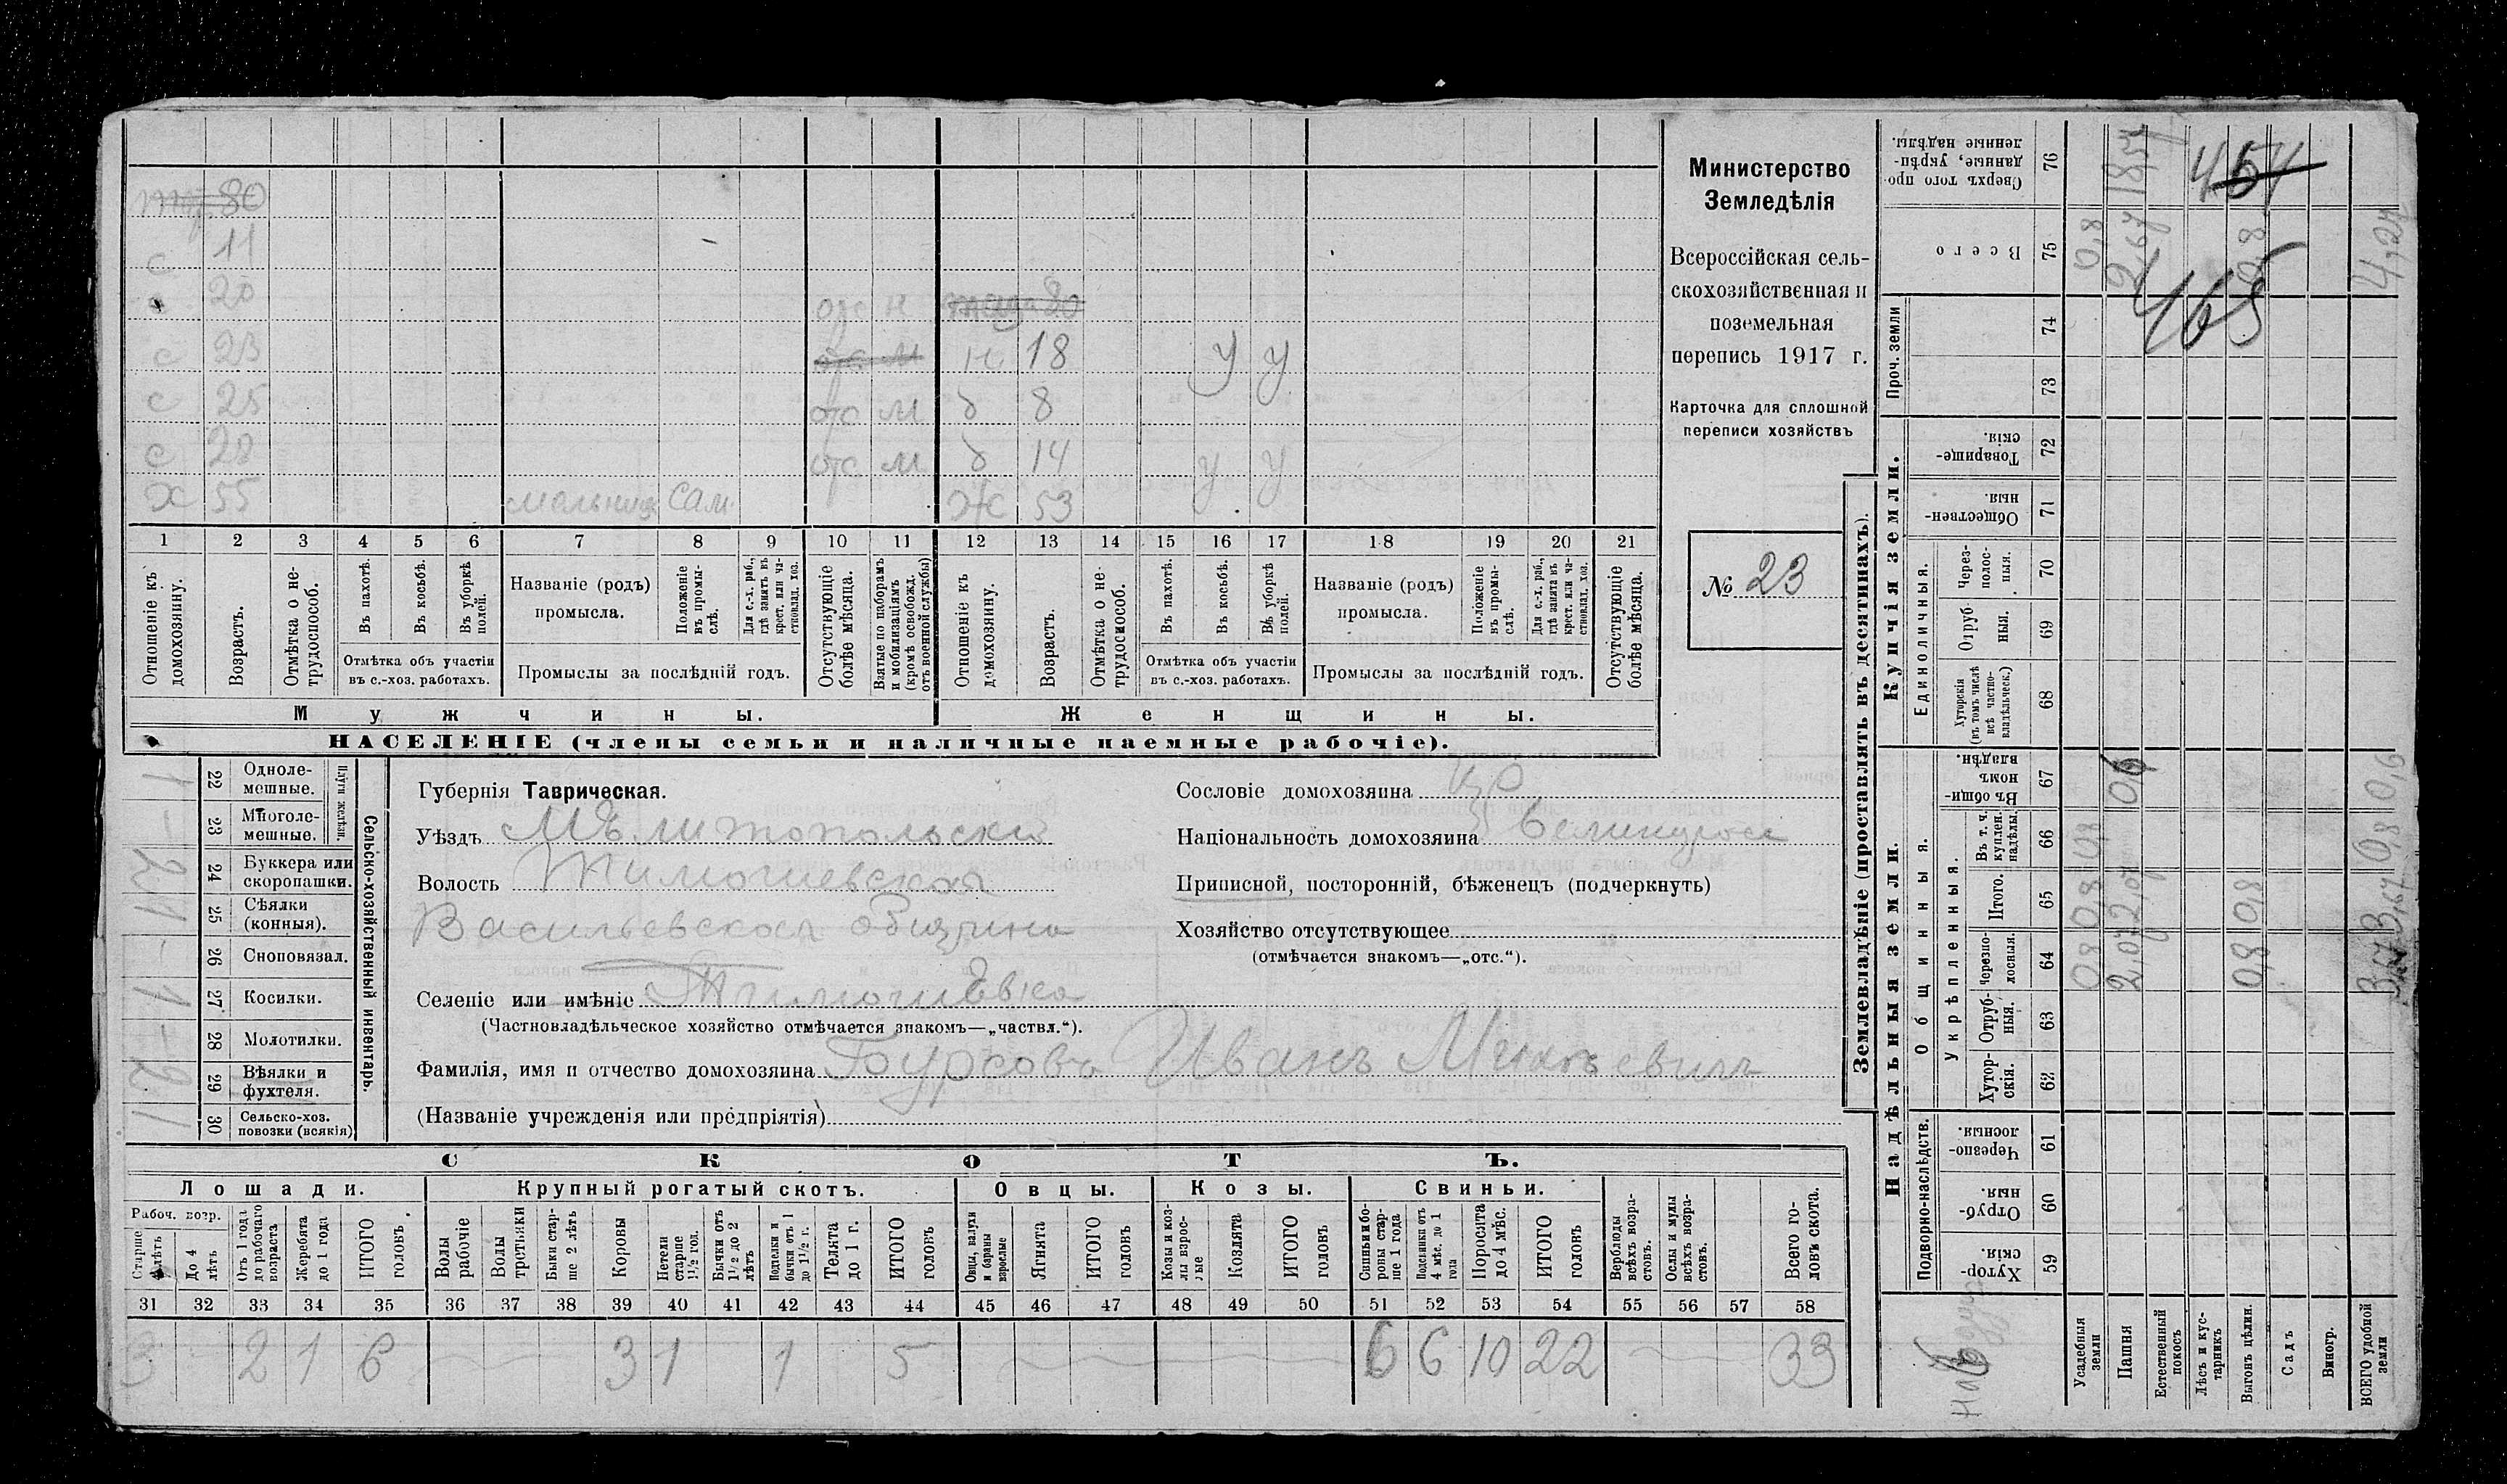 80
с 11
20 отс м 80
с 23 отс м н 18 у у
с 25 отс м д 8
с 28 отс м д 14 у у
х 55 мельниц сам ж 53
1 2 3 4 5 6 7 8 9 10 11 12 13 14 15 16 17 18 19 20 21
Отношеніе къ домохозяину.
Возрастъ.
Отмѣтка о не-трудоспособ.
Въ пахотѣ.
Въ косьбѣ.
Въ уборкѣ полей.
Отмѣтка объ участіи
въ с.-хоз. работахъ.
Названіе (родъ)
промысла.
Положеніе въ промы-слѣ.
Для с.-х. раб., гдѣ занятъ въ крест. или ча-стновлад. хоз.
Промыслы за послѣдній годъ.
Отсутствующіе болѣе мѣсяца.
Взятые по наборамъ и мобилизаціямъ (кромѣ освобожд. отъ военной службы)
Отношеніе къ домохозяину.
Возрастъ.
Отмѣтка о не-трудоспособ.
Въ пахотѣ.
Въ косьбѣ.
Въ уборкѣ полей.
Отмѣтка объ участіи
въ с.-хоз. работахъ.
Названіе (родъ)
промысла.
Положеніе въ промы-слѣ.
Для с.-х. раб., гдѣ занята въ крест. или ча-стновлад. хоз.
Промыслы за послѣдній годъ.
Отсутствующіе болѣе мѣсяца.
Мужчины. Женщины.
НАСЕЛЕНІЕ (члены семьи и наличные наемные рабочіе).
Министерство
Земледѣлія
Всероссійская сель-
скохозяйственная и
поземельная
перепись 1917 г.
Карточка для сплошной
переписи хозяйствъ
№ 23
Сельско-хозяйственный инвентарь.
Плуги желѣзн.
22 Одноле-мешные. 1
23 Многоле-мешные. -
24 Буккера или скоропашки. 2
25 Сѣялки (конныя). 1
26 Сноповязал. -
27 Косилки. 1
28 Молотилки. -
29 Вѣялки и фухтеля.
30 Сельско-хоз. повозки (всякія)
Губернія Таврическая.
Уѣздъ Мѣлитопольски
Волость Тимошевская
Васильевская община
Селеніе или имѣніе Тимошевка
(Частновладѣльческое хозяйство отмѣчается знакомъ—„частвл.“).
Фамилія, имя и отчество домохозяина Бурсовъ Иванъ
(Названіе учрежденія или предпріятія)
Сословіе домохозяина кр
Національность домохозяина великоросс
Приписной, посторонній, бѣженецъ (подчеркнуть)
Хозяйство отсутствующее
(отмѣчается знакомъ—„отс.“).
СКОТЪ.
Лошади. Крупный рогатый скотъ. Овцы. Козы. Свиньи.
Рабоч. возр.
Старше 4 лѣтъ
До 4 лѣтъ
Отъ 1 года до рабочаго возраста
Жеребята до 1 года
ИТОГО головъ
Волы рабочіе
Волы третьяки
Быки стар-ше 2 лѣтъ
Коровы
Нетели старше 1½ год.
Бычки отъ 1½ до 2 лѣтъ
Подтелки и бычки отъ 1 до 1½ г.
Телята до 1 г.
ИТОГО головъ
Овцы, валухи и бараны взрослые
Ягнята
ИТОГО головъ
Козы и коз-лы взрос-лые
Козлята
ИТОГО головъ
Свиньи и бо-ровы стар-ше 1 года
Подсвинки отъ 4 мѣс. до 1 года
Поросята до 4 мѣс.
ИТОГО головъ
Верблюды всѣхъ возра-стовъ.
Ослы и мулы всѣхъ возра-стовъ.
Всего го-ловъ скота.
31 32 33 34 35 36 37 38 39 40 41 42 43 44 45 46 47 48 49 50 51 52 53 54 55 56 57 58
3 2 1 6 3 1 1 5 6 6 10 22 33
Землевладѣніе (проставлять въ десятинахъ).
Надѣльныя земли. Купчія земли.
Подворно-наслѣдств. Общинныя. Единоличныя. Проч. земли
Укрѣпленныя.
59 Хутор-скія.
60 Отруб-ныя.
61 Черезпо-лосныя.
62 Хутор-скія.
63 Отруб-ныя.
64 Черезпо-лосныя.
65 Итого.
66 Въ т. ч. куплен. надѣлы.
67 Въ общи-номъ владѣн.
68 Хуторскія (въ томъ числѣ всѣ частно-владѣльческ.)
69 Отруб-ныя.
70 Через-полос-ныя.
71 Обществен-ныя.
72 Товарище-скія.
73
74
75 Всего
76 Сверхъ того про-данные, укрѣп-ленные надѣлы.
Усадебныя земли 0,8 0,8 0,8
Пашня 2,07 2,07 06 2,67
Естественный покосъ
Лѣсъ и кус-тарникъ
Выгонъ цѣлин. 0,8 0,8 0,8
Садъ
Виногр.
ВСЕГО удобной земли 3,67 0,8 0,6 4,27
454
465